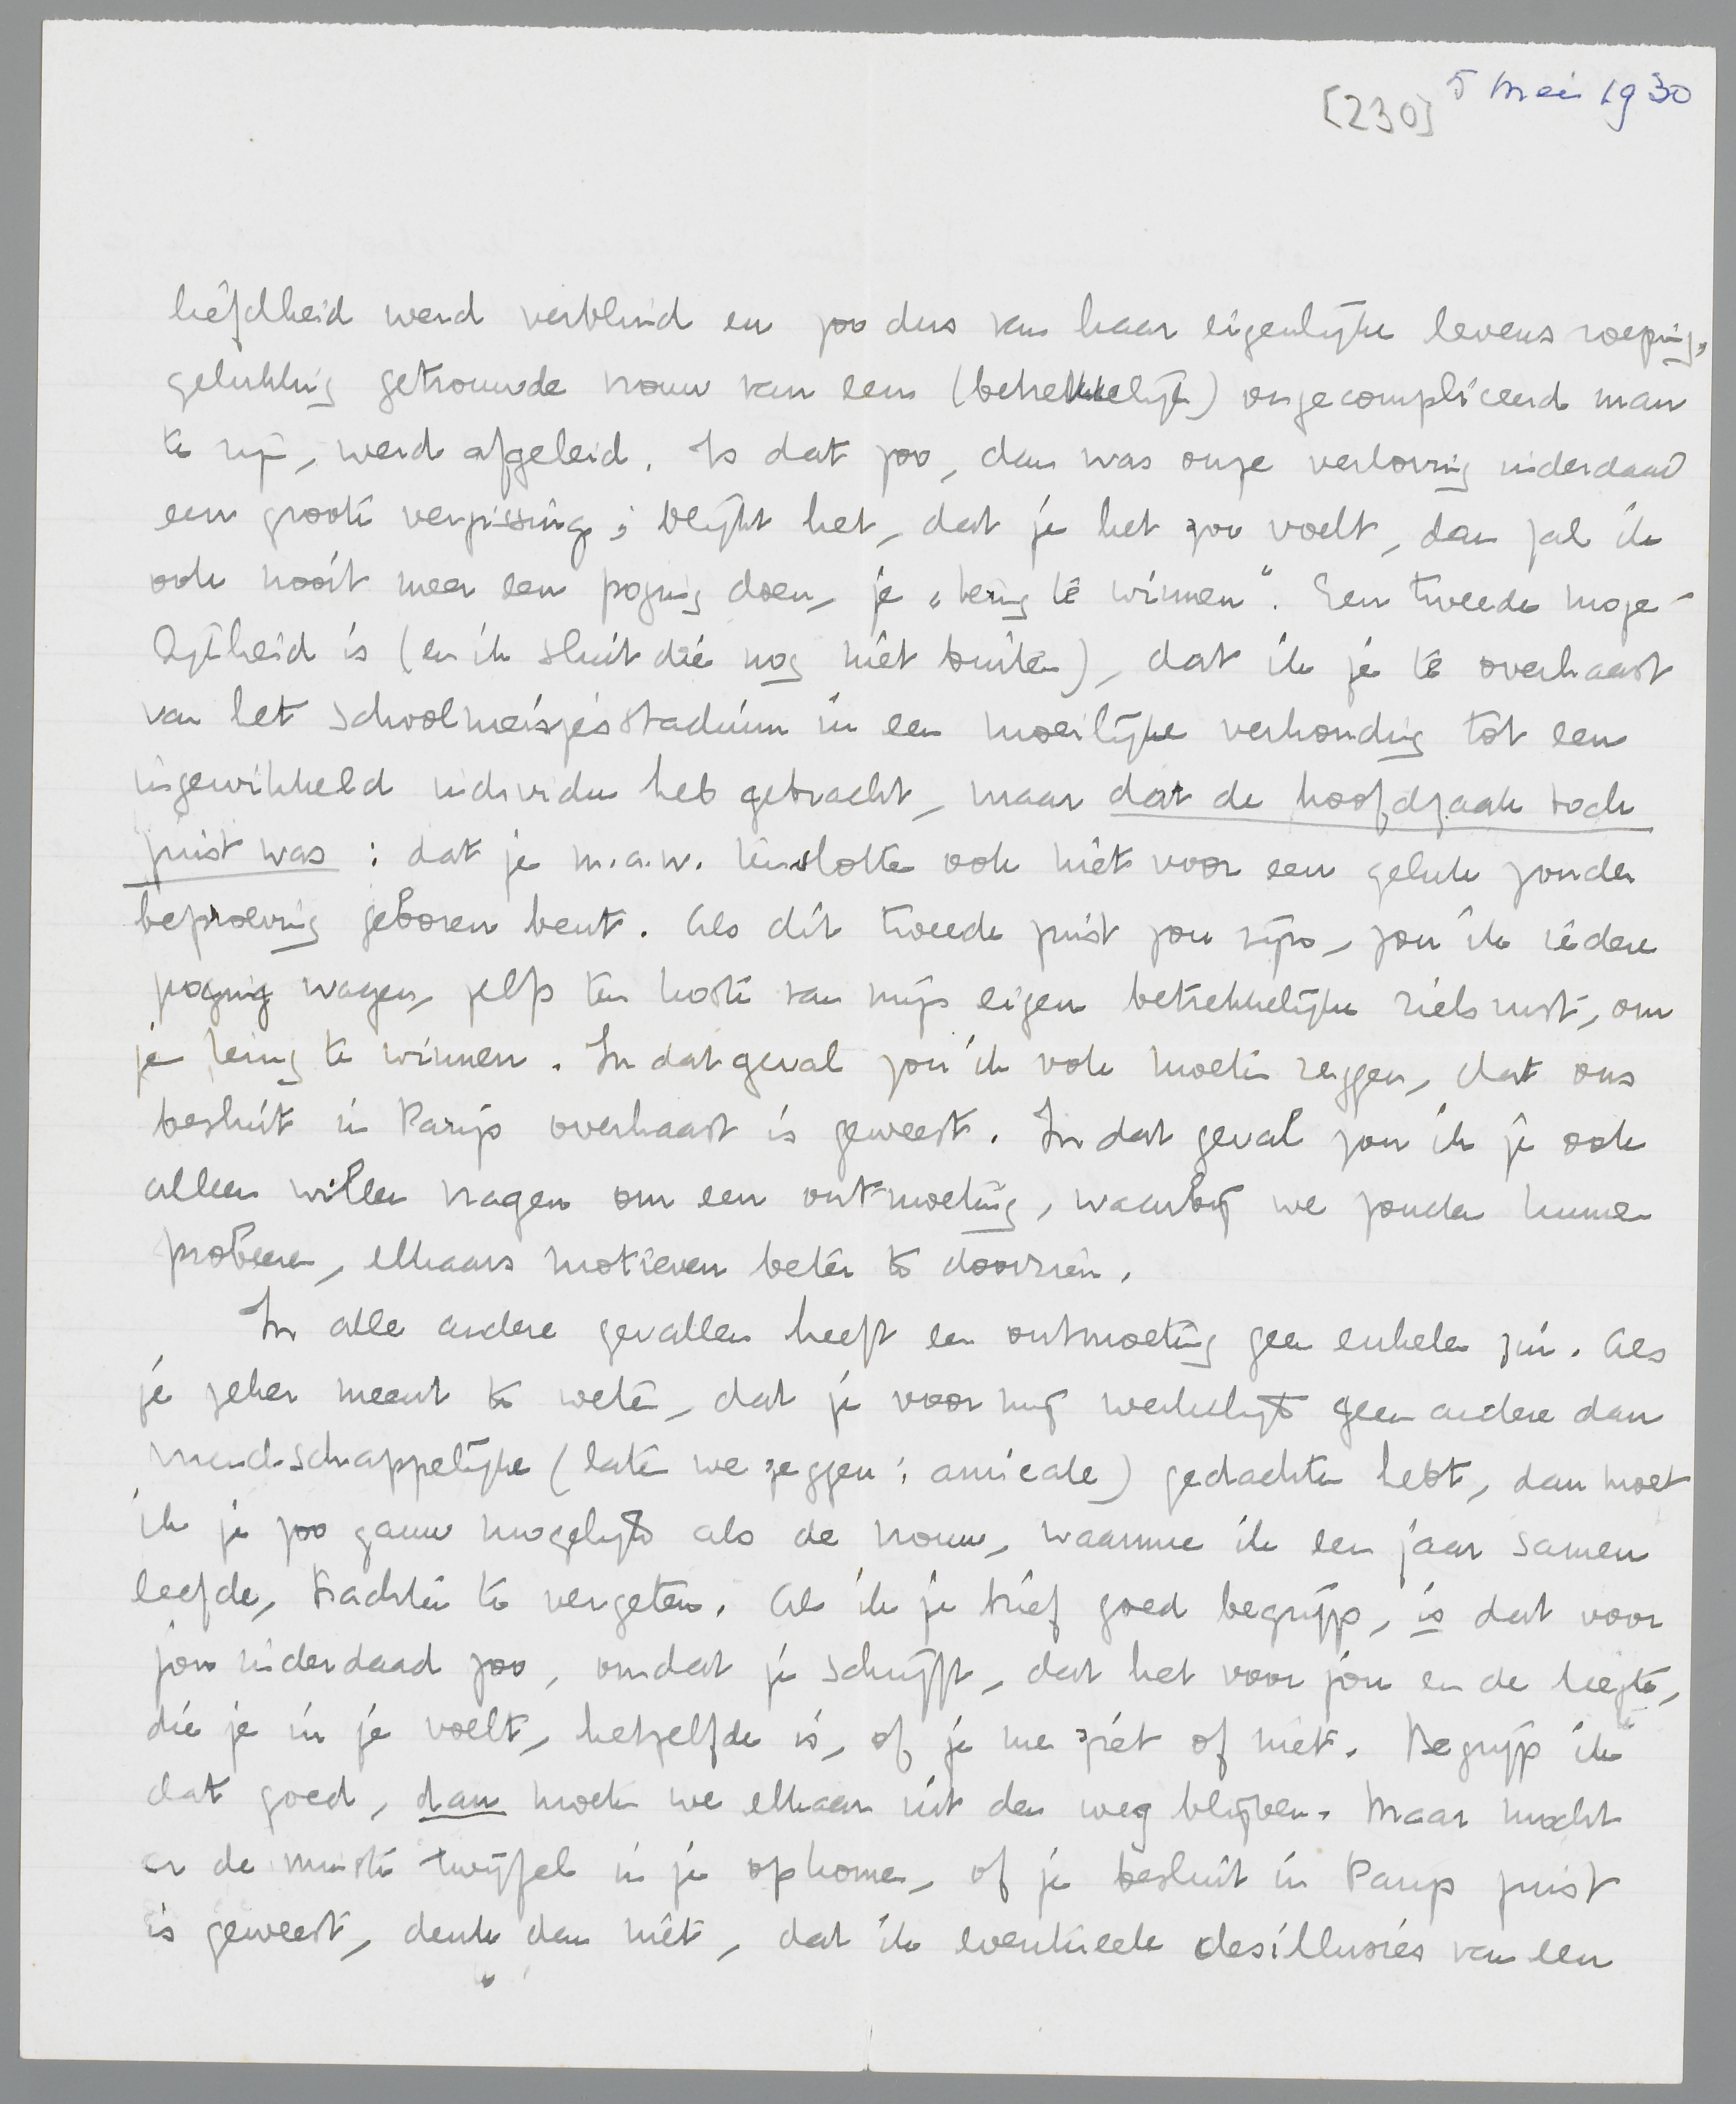 [230] 5 Mei 1930
liefdheid werd verblind en zoo dus van haar eigenlijke levensroeping,
gelukkig getrouwde vrouw van een (betrekkelijk) ongecompliceerd man
te zijn, werd afgeleid. Is dat zoo, dan was onze verloving inderdaad
een groote vergissing; blijkt het, dat je het zoo voelt, dan zal ik
ook nooit meer een poging doen, je „terug te winnen". Een tweede moge-
lijkheid is (en ik sluit die nog niet buiten), dat ik je te overhaast
van het schoolmeisjesstadium in een moeilijke verhouding tot een
ingewikkeld individu heb gebracht, maar dat de hoofdzaak toch
juist was: dat je m.a.w. tenslotte ook niet voor een geluk zonder
beproeving geboren bent. Als dit tweede juist zou zijn, zou ik iedere
poging wagen, zelfs ten koste van mijn eigen betrekkelijke zielsrust, om
je terug te winnen. In dat geval zou ik ook moeten zeggen, dat ons
besluit in Parijs overhaast is geweest. In dat geval zou ik je ook
alleen willen vragen om een ontmoeting, waarbij we zouden kunnen
probeeren, elkaars motieven beter te doorzien.
In alle andere gevallen heeft een ontmoeting geen enkelen zin. Als
je zeker meent te weten, dat je voor mij werkelijk geen andere dan
vriendschappelijke (laten we zeggen: amicale) gedachten hebt, dan moet
ik je zoo gauw mogelijk als de vrouw, waarmee ik een jaar samen
leefde, trachten te vergeten. Als ik je brief goed begrijp, is dat voor
jou inderdaad zoo, omdat je schrijft, dat het voor jou en de leegte,
die je in je voelt, hetzelfde is, of je me ziet of niet. Begrijp ik
dat goed, dan moeten we elkaar uit den weg blijven. Maar mocht
er de minste twijfel in je opkomen, of je besluit in Parijs juist
is geweest, denk dan niet, dat ik eventueele desillusies van een